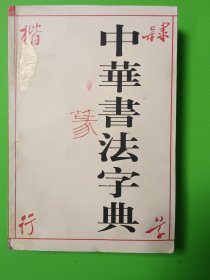 中華書法字典
楷
隸
篆
行
草